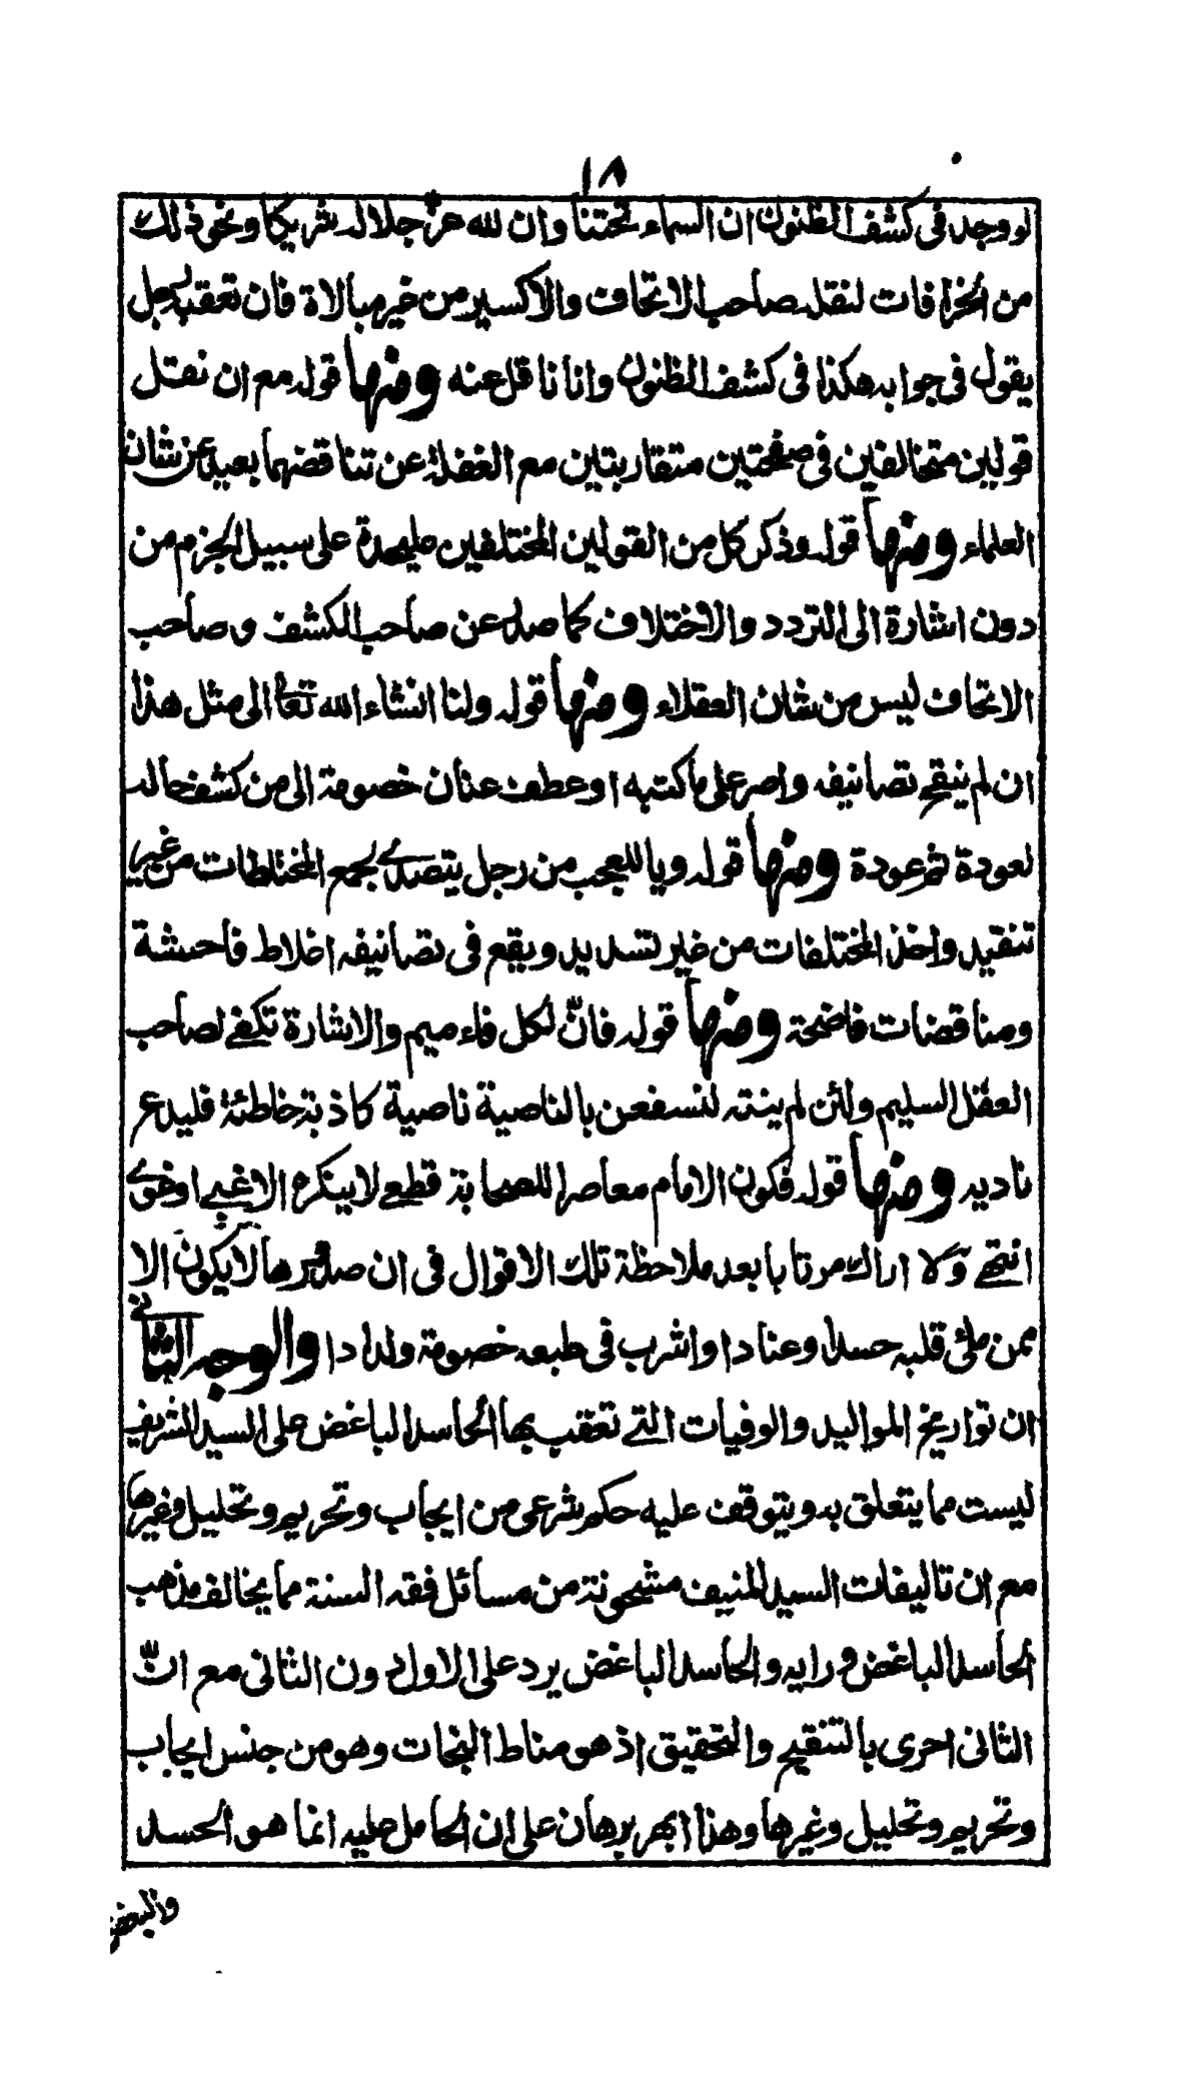 ١٨
لو وجد في كشف الظنون ان السماء تحتنا وان لله عز جلاله شريكا ونحو ذلك
من الخرافات لنقله صاحب الاتحاف والاكسير من غير مبالاة فان تعقبه رجل
يقول في جوابه هكذا في كشف الظنون وانا ناقل عنه ومنها قوله مع ان نقل
قولين متخالفين في صفحتين متقاربتين مع الغفلة عن تناقضهما بعيد عن شان
العلماء ومنها قوله وذكر كل من القولين المختلفين عليحدة على سبيل الجزم من
دون اشارة الى التردد والاختلاف كما صدر عن صاحب الكشف وصاحب
الاتحاف ليس من شان العقلاء ومنها قوله ولنا انشاء الله تعالى الى مثل هذا
ان لم ينقح تصانيفه واصر على ما كتبه او عطف عنان خصومة الى من كشف حاله
لعودة ثم عودة ومنها قوله ويا للعجب من رجل يتصدى لجمع المختلطات من غير
تنقيد واخذ المختلفات من غير تسديد ويقع في تصانيفه اغلاط فاحشة
ومناقضات فاضحة ومنها قوله فانّ لكل فاء ميم والاشارة تكفى لصاحب
العقل السليم ولئن لم ينته لنسفعن بالناصية ناصية كاذبة خاطئة فليدع
ناديه ومنها قوله فكون الامام معاصرا للصحابة قطعى لا ينكره الا غبى او غوى
انتهى ولا اراك مرتابا بعد ملاحظة تلك الاقوال في ان صدورها لا يكون الا
ممن ملئ قلبه حسدا وعنادا واشرب في طبعه خصومة ولدادا والوجه الثانى
ان تواريخ المواليد والوفيات التى تعقب بها الحاسد الباغض على السيد الشريف
ليست مما يتعلق به ويتوقف عليه حكم شرعى من ايجاب وتحريم وتحليل وغيرها
مع ان تاليفات السيد المنيف مشحونة من مسائل فقه السنة مما يخالف مذهب
الحاسد الباغض ورايه والحاسد الباغض يرد على الاول دون الثانى مع انّ
الثانى احرى بالتنقيح والتحقيق اذ هو مناط النجات وهو من جنس ايجاب
وتحريم وتحليل وغيرها وهذا ابهر برهان على ان الحامل عليه انما هو الحسد
والبغض